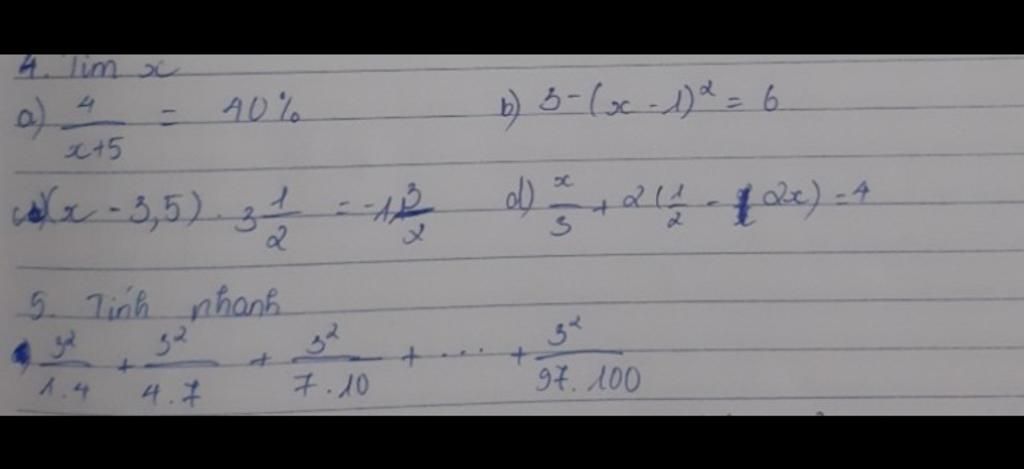 4. Tìm x
a) 4/(x+5) = 40% b) 3 - (x - 1)² = 6
c) (x - 3,5) . 3 1/2 = d) x/3 + 2(1/2 - 2x) = 4
5. Tính nhanh
3²/1.4 + 3²/4.7 + 3²/7.10 + ... + 3²/97.100